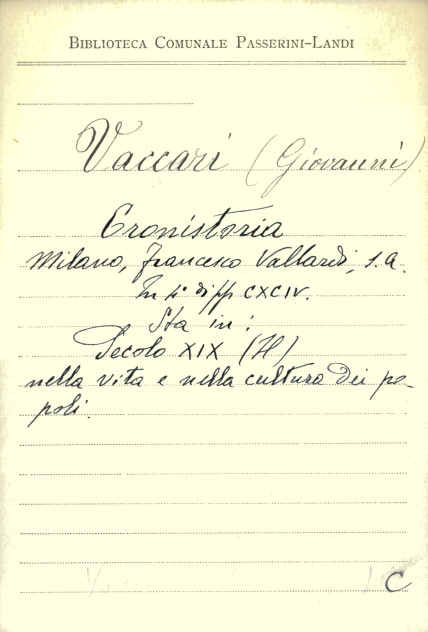 BIBLIOTECA COMUNALE PASSERINI-LANDI
Vaccari (Giovanni)
Cronistoria
Milano, Francesco Vallardi, s.a.
In 4° di pp CXCIV.
Sta in:
Secolo XIX (Il)
nella vita e nella cultura dei po-
poli.
C